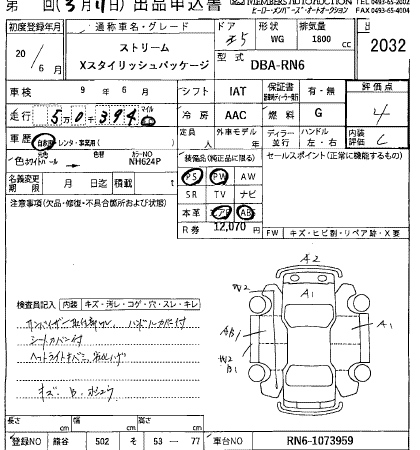 第 回(3月11日) 出品申込書
MEMBERS AUTO AUCTION TEL0493-65-2002
ヒーロー・メンバーズ・オートオークション FAX0493-65-2004
初度登録年月 通称車名・グレード ドア 形状 排気量
20/6月 ストリーム 5 WG 1800cc 2032
Xスタイリッシュパッケージ 型式 DBA-RN6
車検 9年 6月 シフト IAT 保証書 有・無 評価点
走行 5万0千394 マイル km 冷房 AAC 燃料 G 4
車歴 自家用・レンタ・事業用( ) 定員 人 外車モデル 年 ディーラー・並行 ハンドル 左・右 内装評価 C
色 ホワイトパール カラーNO NH624P 装備品(純正品に限る) セールスポイント(正常に機能するもの)
名義変更期限 月 日迄 積載 t PS PW AW
注意事項(欠品・修復・不具合箇所および状態) SR TV ナビ
本革 エアB ABS
R券 12,070
FW キズ・ヒビ割・リペア跡・X要
検査員記入 内装 キズ・汚レ・コゲ・穴・スレ・キレ
A2
A1
W2
AB1
W2
B1
A1
シートカバー付
キズ B
長さ cm 幅 cm 高さ cm
登録NO 熊谷 502 そ 53-77 車台NO RN6-1073959